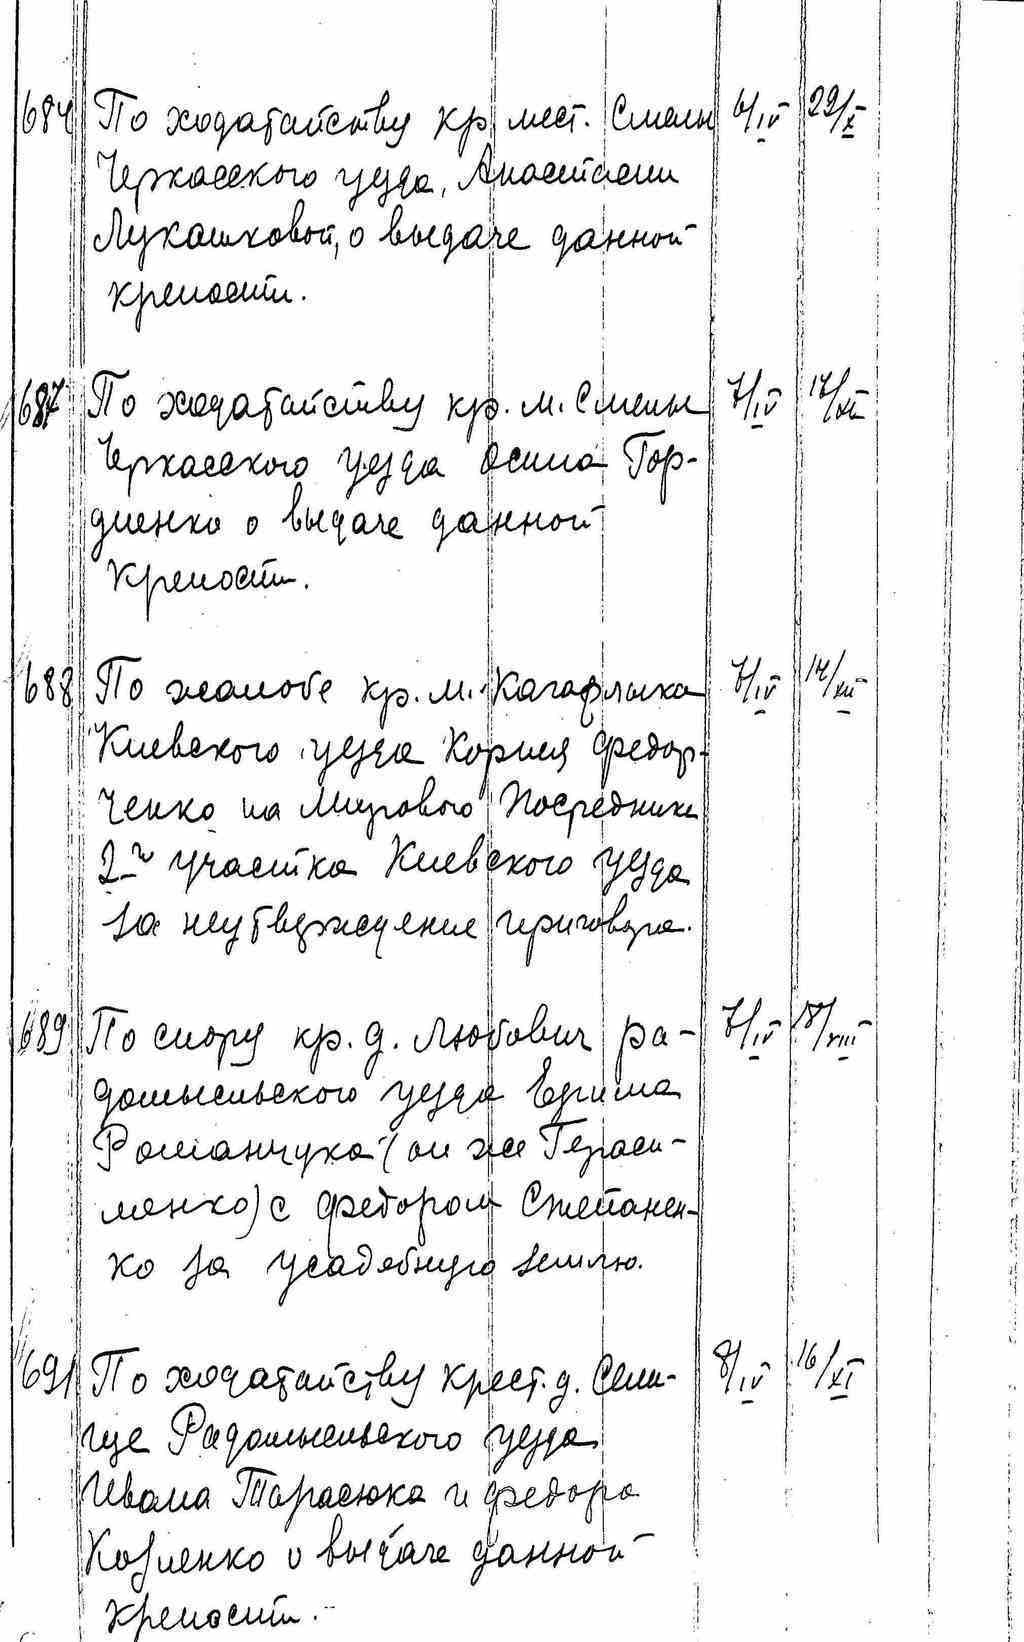 684 По ходатайству кр. мест. Смелы 6/IV 29/X
Черкасского уезда, Анастасии
Лукашковой, о выдаче данной
крепости.
687 По ходатайству кр. м. Смелы 7/IV 17/XII
Черкасского уезда Осипа Гор-
диенко о выдаче данной
крепости.
688 По жалобе кр. м. Кагарлыка 7/IV 14/XII
Киевского уезда Корнея Федор-
ченко на Мирового Посредника
2го участка Киевского уезда
за неутверждение приговора.
689 По спору кр. д. Любович Ра- 7/IV 18/VIII
домысльского уезда
Романчука (он же Гераси-
менко) с Федором Степанен-
ко за усадебную землю.
691 По ходатайству крест. д. Сели- 8/IV 16/XI
ще Радомысльского уезда
Ивана Тарасюка и Федора
Козленко о выдаче данной
крепости.